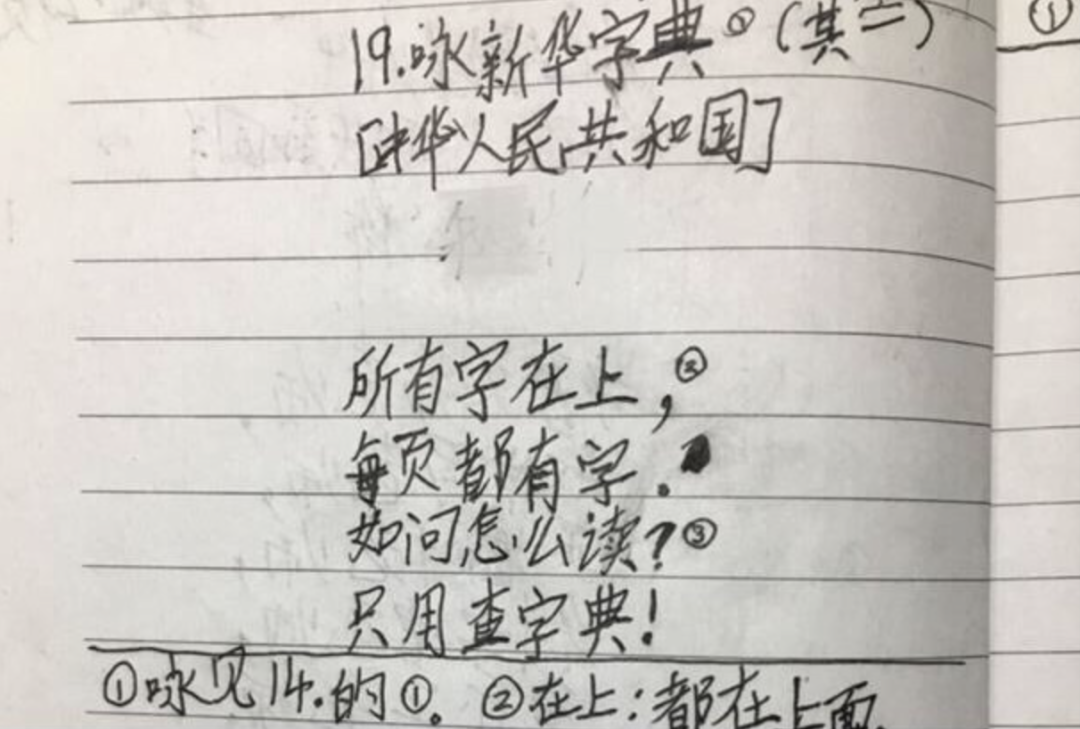 19.咏新华字典①(其二)
[中华人民共和国]
所有字在上,②
每页都有字.
如问怎么读?③
只用查字典!
①咏见14.的①。②在上:都在上面.
①